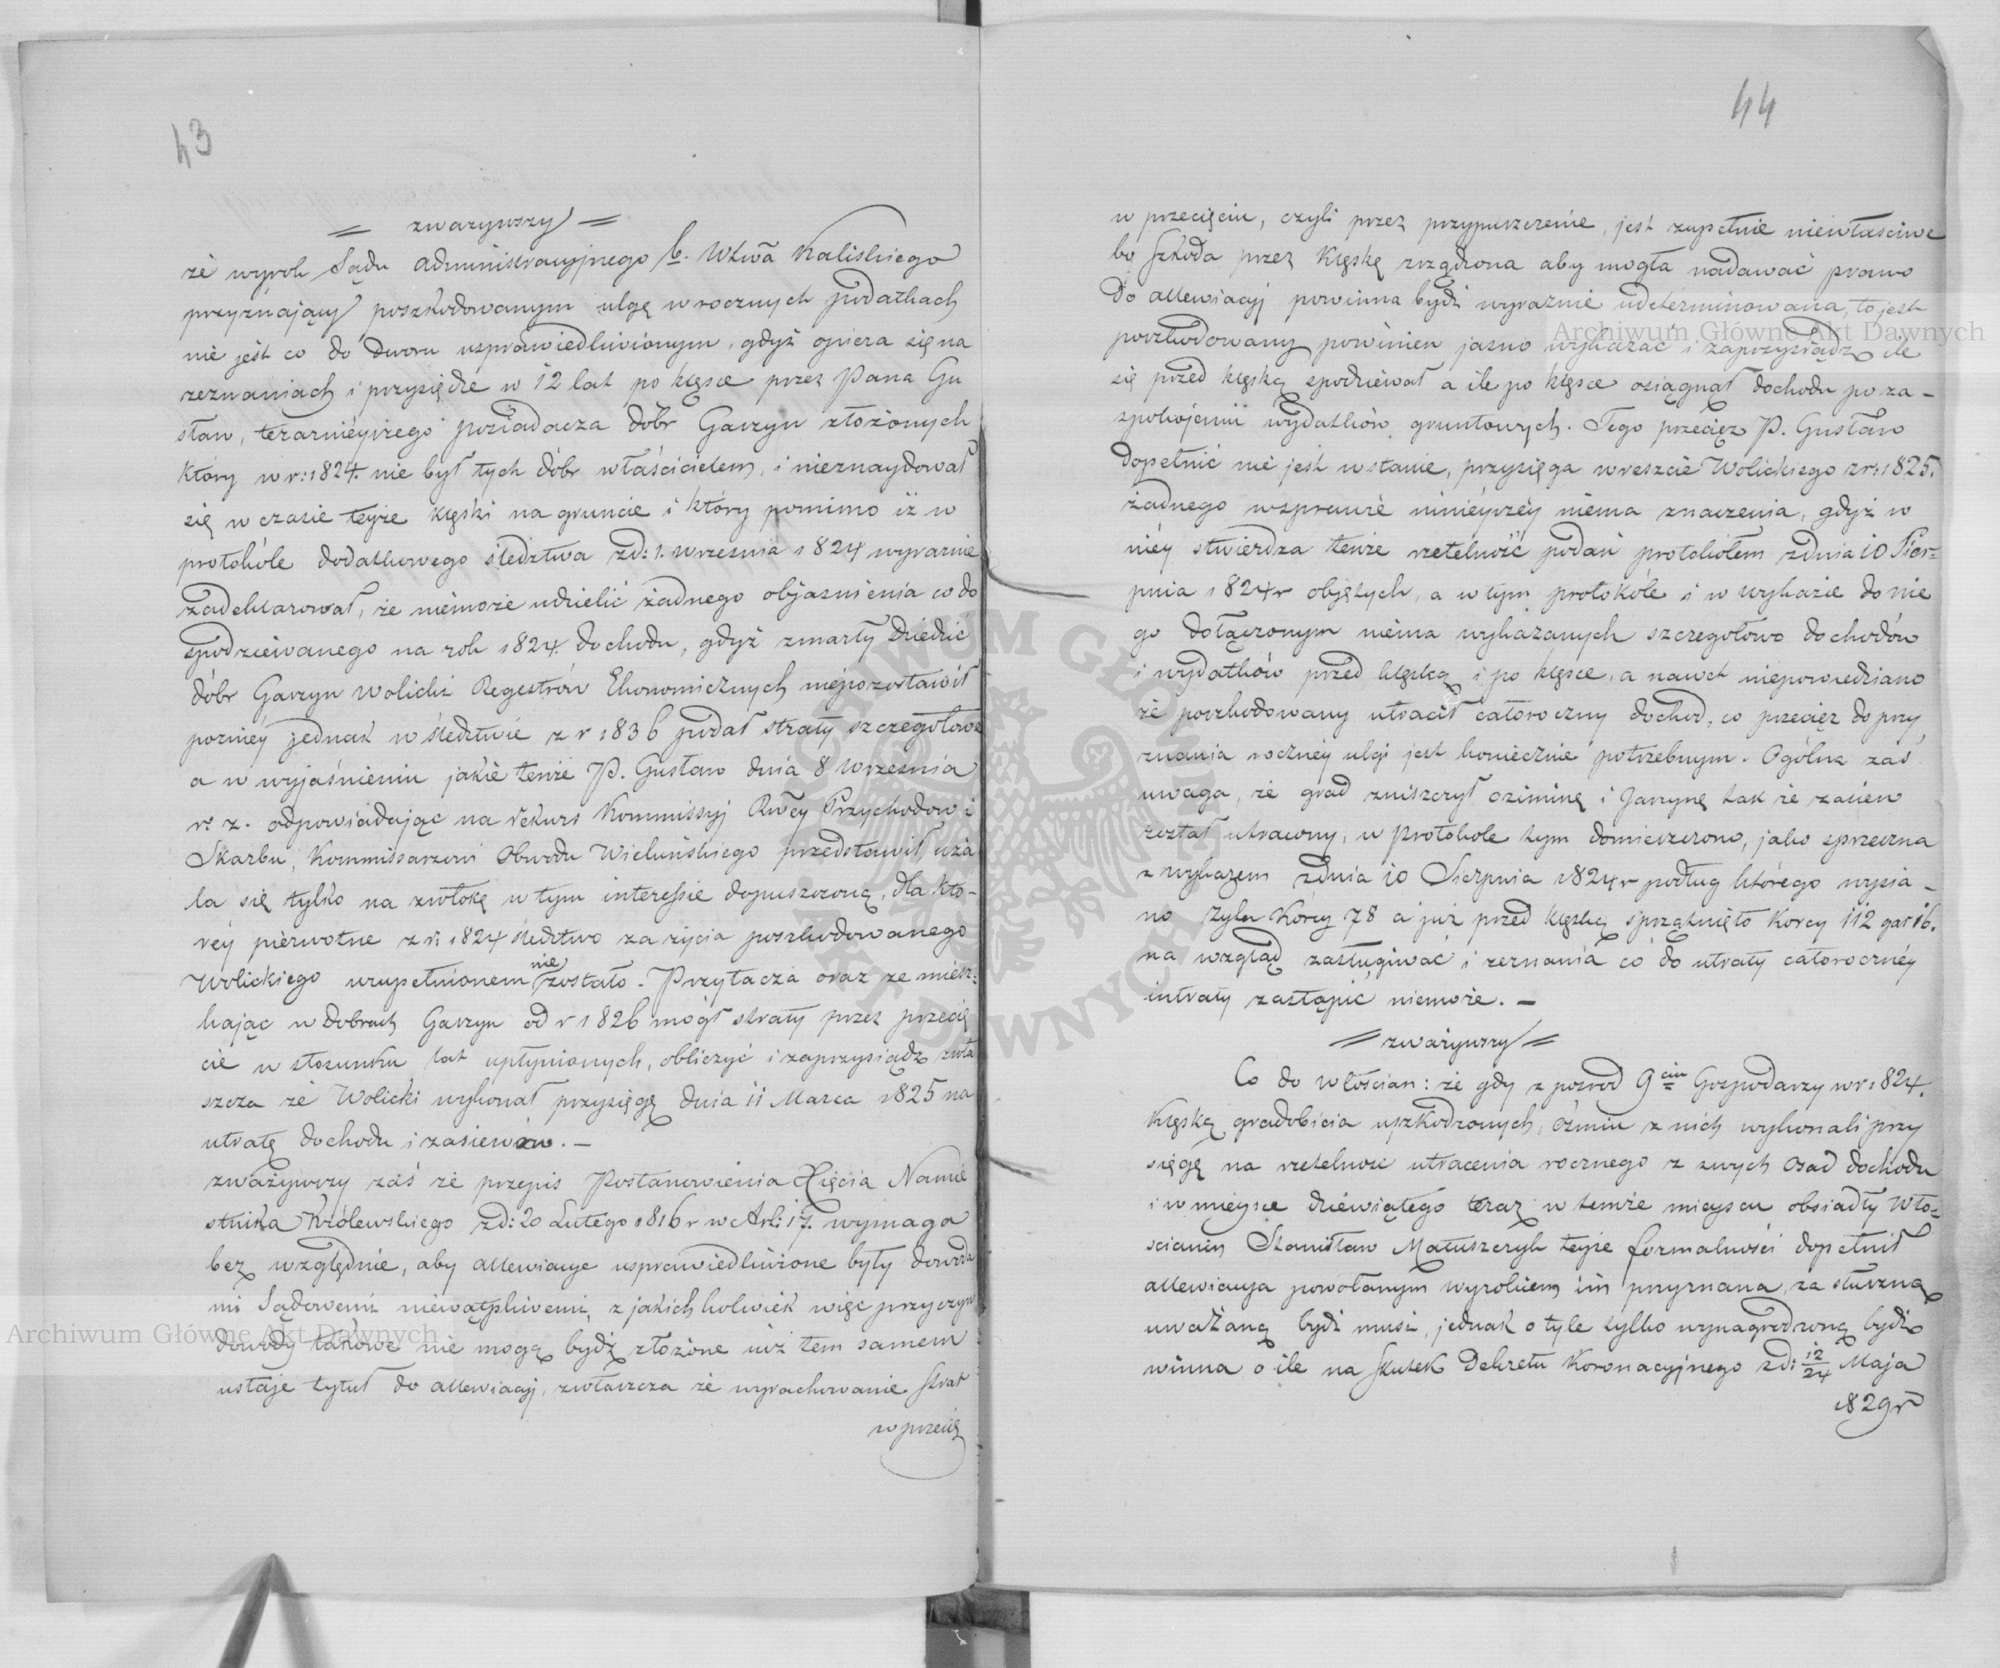 43
zwazywszy
że wyrok Sądu Administracyjnego b. Wtwa Kaliskiego
przyznający poszkodowanym ulgę w rocznych podatkach
nie jest co do Dworu usprawiedliwionym, gdyż opiera się na
zeznaniach i przysiędze w 12 lat po klęsce przez Pana Gu
staw, terazniéyszego posiadacza dóbr Garzyn złożonych
który w r: 1824. nie był tych dóbr właścicielem, i nieznaydował
się w czasie teyże klęski na gruncie i który pomimo iż w
protokóle dodatkowego śledztwa zd: 1. września 1824 wyraznie
zadeklarował, że niemoże udzielić żadnego objasnienia co do
spodziewanego na rok 1824. dochodu, gdyż zmarły Dziedzic
dóbr Garzyn Wolicki Regestrów Ekonomicznych niepozostawił
pozniéy jednak w śledztwie z r 1836 podał straty szczegółowe
a w wyjaśnieniu jakie tenże P. Gustaw dnia 8 Września
r. z. odpowiadając na rekurs Kommissyj Rwéy Przychodow i
Skarbu, Kommissarzowi Obwodu Wieluńskiego przedstawił uża
la się tylko na zwłokę w tym interessie dopuszczoną, dla któ-
réy pierwotne z r: 1824 śledztwo za życia poszkodowanego
Wolickiego uzupełnionem nie zostało. Przytacza oraz ze miesz-
kając w dobrach Garzyn od r 1826 mógł straty przez przecię
cie w stosunku lat upłynionych, obliczyć i zaprzysiądz zwła
szcza że Wolicki wykonał przysięgę dnia 11 Marca 1825 na
utratę dochodu i zasiewów. –
zważywszy zaś że przepis Postanowienia Xięcia Namie
stnika Królewskiego zd: 20 Lutego 1816 r w Art: 17. wymaga
bez względnie, aby allewiacye usprawiedliwione były dowoda
mi Sądowemi niewątpliwemi, z jakichkolwiek więc przyczyn
dowody takowe nie mogą bydź złożone już tem samem
ustaje tytuł do allewiacyj, zwłaszcza że wyrachowanie strat
w przecię
44
w przecięciu, czyli przez przypuszczenie, jest zupełnie niewłasciwe
bo szkoda przez klęskę zrządzona aby mogła nadawać prawo
do allewiacyj powinna bydź wyraznie udeterminowana, to jest
poszkodowany powinien jasno wykazać i zaprzysiądz ile
się przed klęską spodziéwał a ile po klęsce osiągnął dochodu po za-
spokojeniu wydatków gruntowych. Tego przecięz P. Gustaw
dopełnić nie jest w stanie, przysięga wreszcie Wolickiego z r: 1825.
żadnego w sprawie niniéyszéy niema znaczenia, gdyż w
niéy stwierdza tenże rzetelność podań protokółem zdnia 10 Sier-
pnia 1824 r objętych, a w tym protokóle i w wykazie do nie
go dołączonym niema wykazanych szczegółowo dochodów
i wydatków przed klęską i po klęsce, a nawet niepowiedziano
że poszkodowany utracił całoroczny dochod, co przecięz do przy
znania rocznéy ulgi jest koniecznie potrzebnym. Ogólna zaś
uwaga, że grad zniszczył oziminę i Jarzynę tak że zasiew
został utracony, w protokole tym domieszczono, jako sprzeczna
z wykazem zdnia 10 Sierpnia 1824 r podług którego wysia-
no Zyta Korcy 78 a już przed klęską sprzątnięto Korcy 112 gar 16.
na wzgląd zasługiwać i zeznania co do utraty całorocznéy
intraty zastąpić niemoże. –
zważywszy
Co do włościan: że gdy z powod 9ciu Gospodarzy w r 1824.
klęską gradobicia uszkodzonych, ośmiu z nich wykonali przy
sięgę na rzetelnosc utracenia rocznego z swych Osad dochodu
i w mieysce dziéwiątego teraz w temże mieyscu obsiadły Wło-
scianin Stanisław Matuszczyk teyże formalności dopełnił
allewiacya powołanym wyrokiem im przyznana, za słuszną
uważaną bydź musi, jednak o tyle tylko wynagrodzoną bydź
winna o ile na skutek Dekretu Koronacyjnego zd: 12/24 Maja
1829 r
Archiwum Główne Akt Dawnych
Archiwum Główne Akt Dawnych
ARCHIWUM GŁÓWNE AKT DAWNYCH